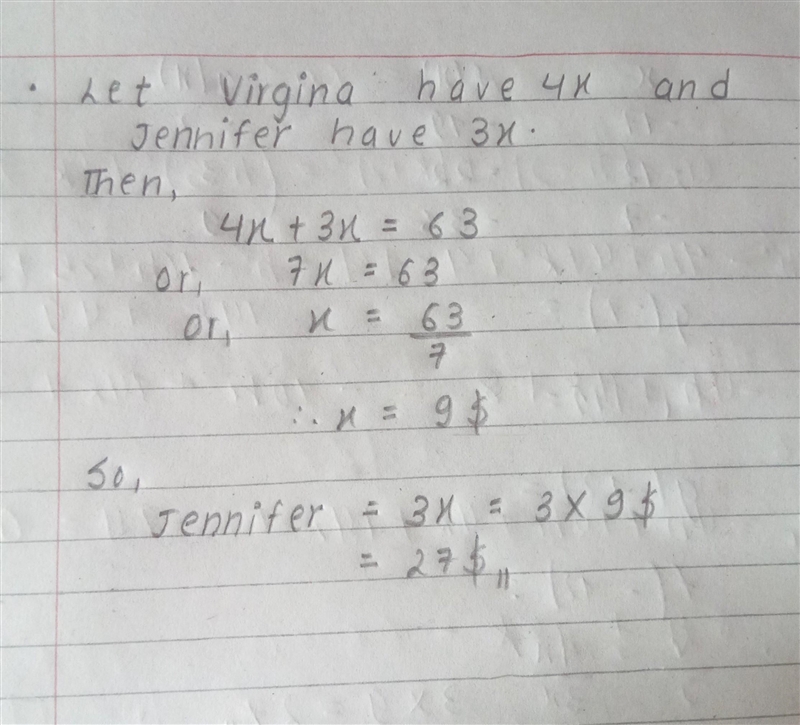 • Let Virgina have 4x and
Jennifer have 3x.
Then,
4x + 3x = 63
or, 7x = 63
or, x = 63/7
∴ x = 9$
So,
Jennifer = 3x = 3 × 9$
= 27$,,